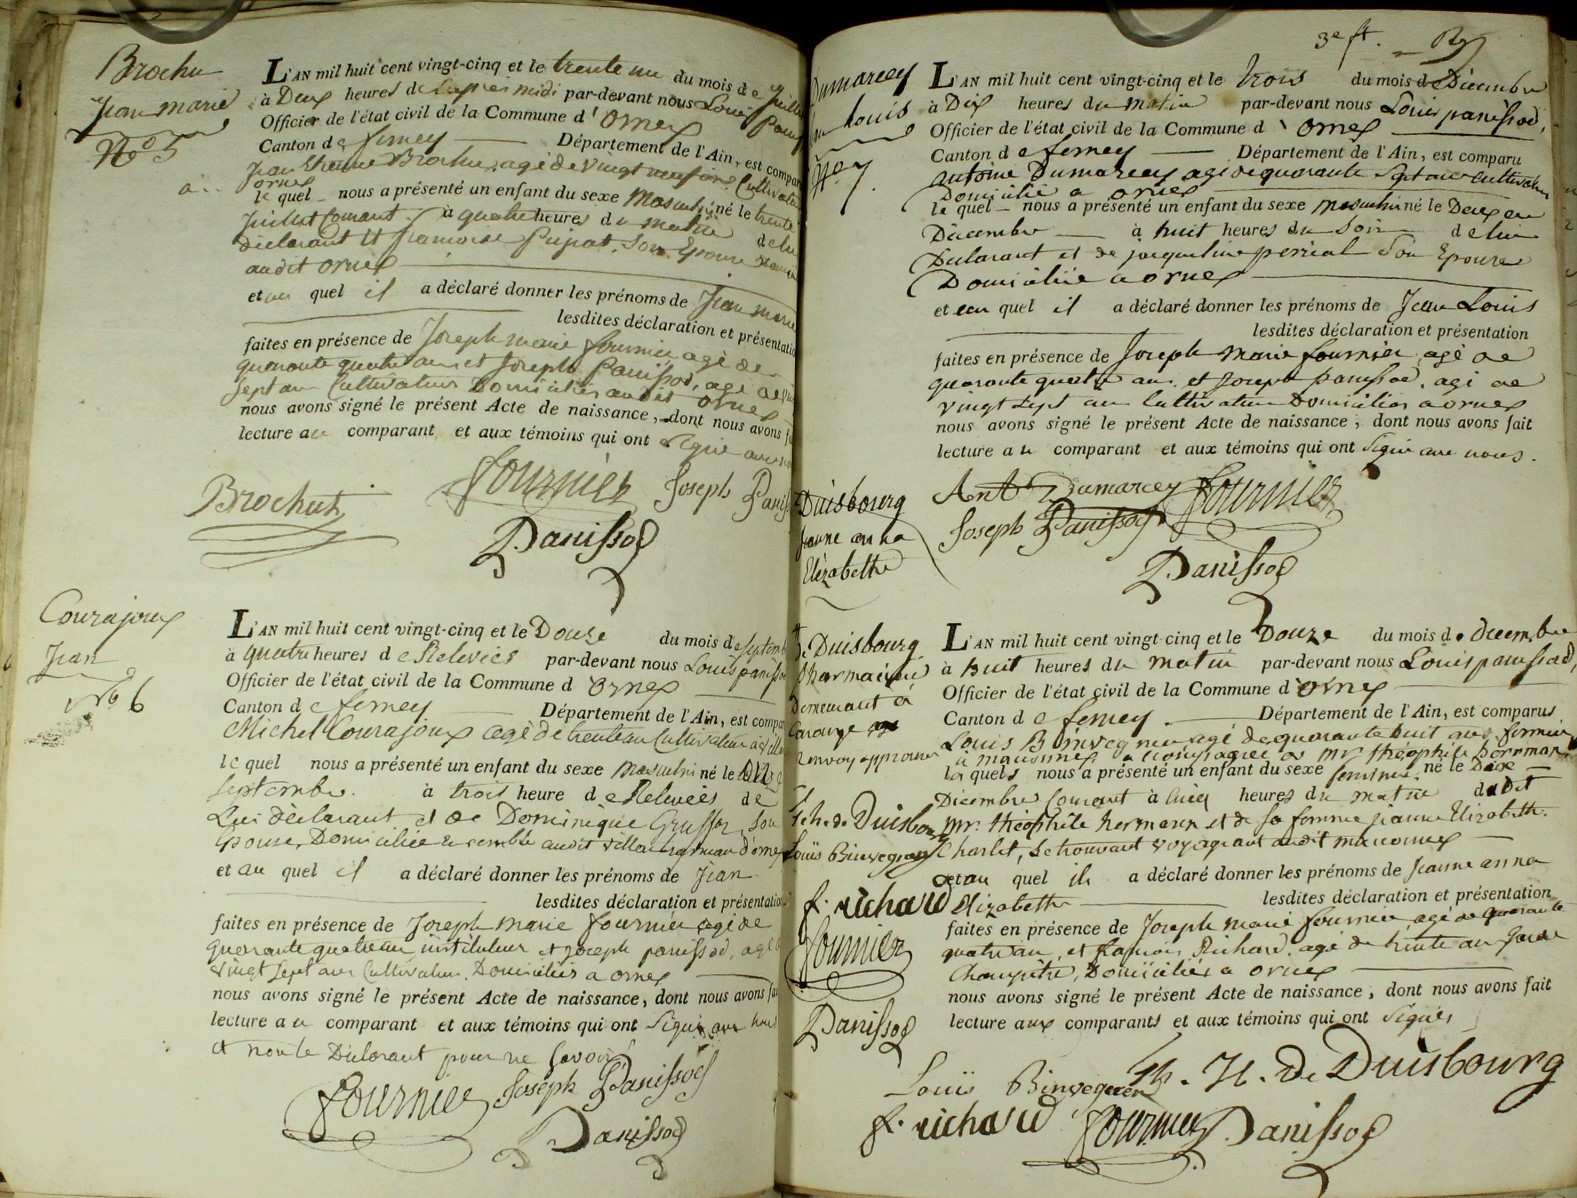 Brochu
Jean marie
N.o 5
L'AN mil huit cent vingt-cinq et le trente un du mois de Juillet
à Deux heures de lapres midi par-devant nous Louis
Officier de l'état civil de la Commune d' Ornex
Canton de ferney Département de l'Ain, est comparu
Jean Brochu, agé de vingt neuf ans Cultivateur
a ornex
le quel nous a présenté un enfant du sexe Masculin né le trente
Juillet Courant à quatre heures du matin de lui
déclarant et françoise son Epouse
audit ornex
et au quel il a déclaré donner les prénoms de Jean marie
lesdites déclaration et présentation
faites en présence de Joseph marie fournier agé de
quarante quatre ans et Joseph Panissod, agé de vingt
sept ans Cultivateurs Domiciliés audit ornex
nous avons signé le présent Acte de naissance, dont nous avons fait
lecture au comparant et aux témoins qui ont signé avec nous
Brochut
fournier
Joseph Paniss
Panissod
Courajoux
Jean
N.o 6
L'AN mil huit cent vingt-cinq et le Douze du mois de septembre
à quatre heures de Relevées par-devant nous Louis panissod
Officier de l'état civil de la Commune d' Ornex
Canton de ferney Département de l'Ain, est comparu
Michel Courajoux agé de trente ans Cultivateur
le quel nous a présenté un enfant du sexe masculin né le
septembre à trois heure de Relevées de
Lui déclarant et de Dominique son
Epouse, Domiciliée ensemble audit d'ornex
et au quel il a déclaré donner les prénoms de Jean
lesdites déclaration et présentation
faites en présence de Joseph marie fournier agé de
quarante quatre ans instituteur et Joseph panissod, agé de
vingt sept ans Cultivateur, Domiciliés a ornex
nous avons signé le présent Acte de naissance, dont nous avons fait
lecture au comparant et aux témoins qui ont signés avec nous
et non le Déclarant pour ne savoir
fournier
Joseph Panissod
Panissod
3e ft.
Dumarcey
Jean Louis
N.o 7.
L'AN mil huit cent vingt-cinq et le trois du mois de Décembre
à Dix heures du matin par-devant nous Louis panissod,
Officier de l'état civil de la Commune d' Ornex
Canton de ferney Département de l'Ain, est comparu
antoine Dumarcey agé de quarante sept ans Cultivateur
Domicilié a ornex
le quel nous a présenté un enfant du sexe masculin né le Deux
Décembre à huit heures du soir de lui
Déclarant et de jacqueline son Epouse
Domiciliée a ornex
et au quel il a déclaré donner les prénoms de Jean Louis
lesdites déclaration et présentation
faites en présence de Joseph marie fournier, agé de
quarante quatre ans et Joseph panissod, agé de
vingt sept ans Cultivateur Domiciliés a ornex
nous avons signé le présent Acte de naissance, dont nous avons fait
lecture au comparant et aux témoins qui ont signé avec nous.
Ant Dumarcey
fournier
Joseph Panissod
Panissod
Duisbourg
Jeanne anna
Elizabethe
de Duisbourg
Pharmacien
Demeurant à
Carouge
Renvoy approuvé
Th. h. de Duisbourg
Louis Binvegnen
f. richard
fournier
Panissod
L'AN mil huit cent vingt-cinq et le Douze du mois de decembre
à huit heures du matin par-devant nous Louis panissod,
Officier de l'état civil de la Commune d' Ornex
Canton de ferney Département de l'Ain, est comparus
Louis Binvegnen agé de quarante huit ans, fermier
a maconnex accompagné de mr théophile herrman
les quels nous a présenté un enfant du sexe feminin né le Dixe
Décembre Courant à cinq heures du matin dudit
mr. théophile hermann et de sa femme jeanne Elizabeth
Charlet, se trouvant voyageant audit maconnex
et au quel ils a déclaré donner les prénoms de Jeanne anna
Elizabethe lesdites déclaration et présentation
faites en présence de Joseph marie fournier agé de quarante
quatre ans, et françois Richard agé de trente ans garde
Champetre, Domiciliés a ornex
nous avons signé le présent Acte de naissance, dont nous avons fait
lecture aux comparants et aux témoins qui ont signés
Th. H. de Duisbourg
Louis Binvegnen
f. richard
fournier
Panissod